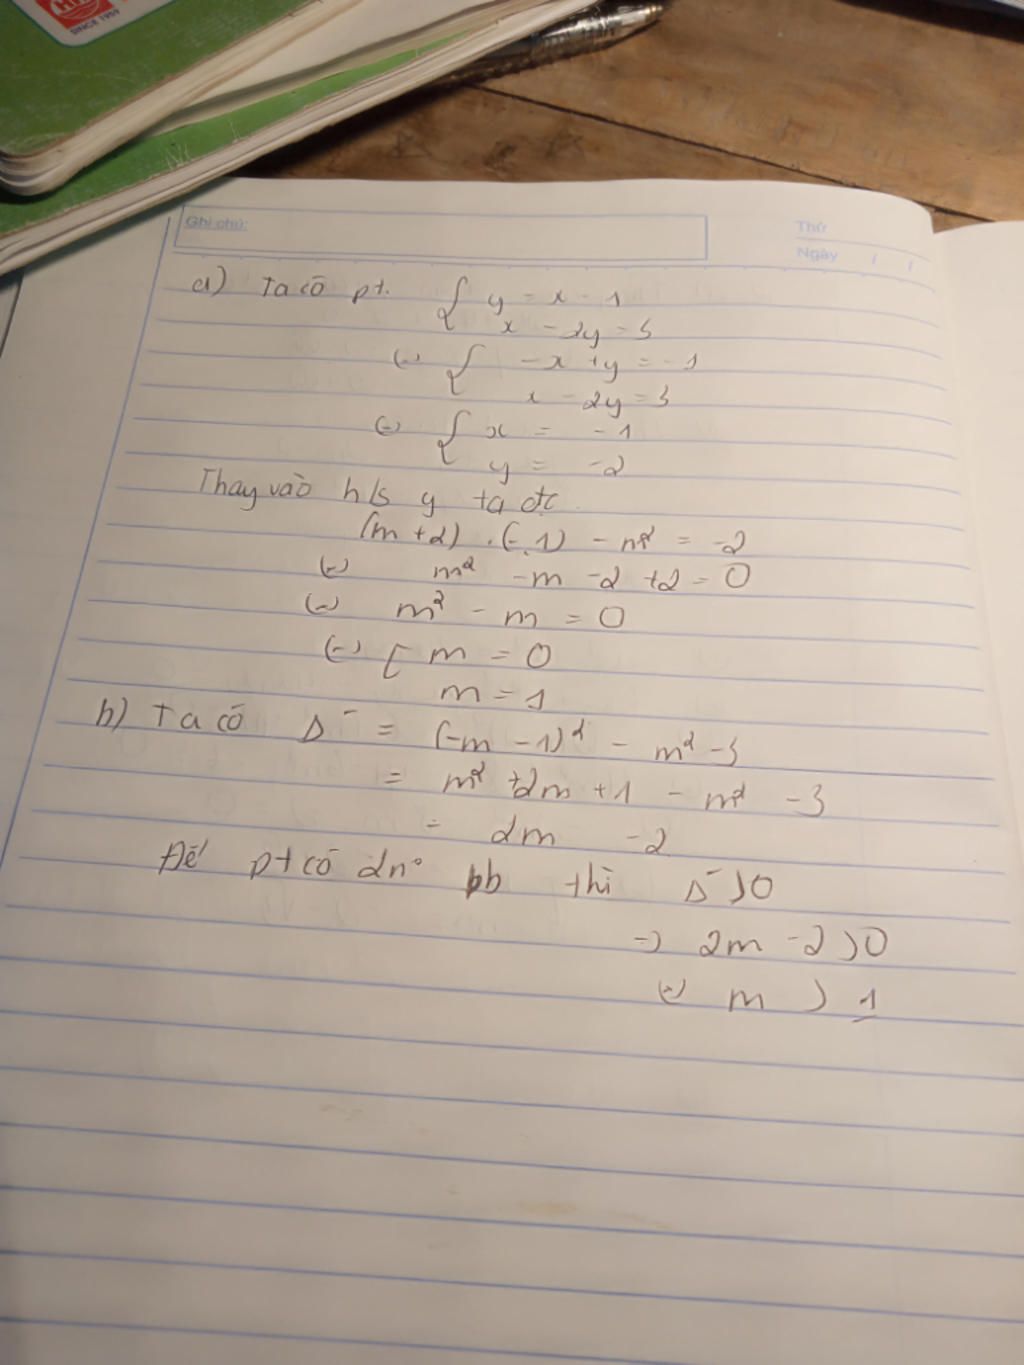 SINCE 1959
Ghi chú:
Thứ
Ngày / /
a) Ta có pt. { y = x - 1
x - 2y = 3
(=) { -x + y = -1
x - 2y = 3
(=) { x = -1
y = -2
Thay vào h/s y ta đc
(m + 2) . (-1) - m² = -2
(=) m² - m - 2 + 2 = 0
(=) m² - m = 0
(=) [ m = 0
m = 1
b) Ta có Δ' = (-m - 1)² - m² - 3
= m² + 2m + 1 - m² - 3
= 2m - 2
Để pt có 2 n° pb thì Δ' > 0
=> 2m - 2 > 0
(=) m > 1